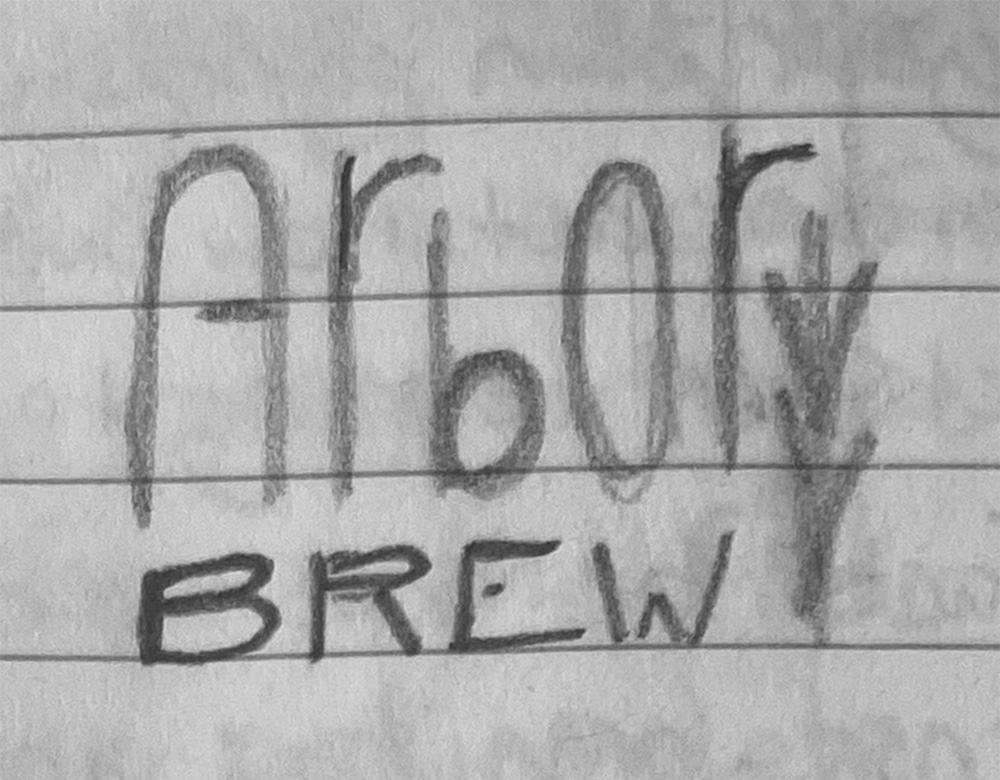 ArbOry
BREW